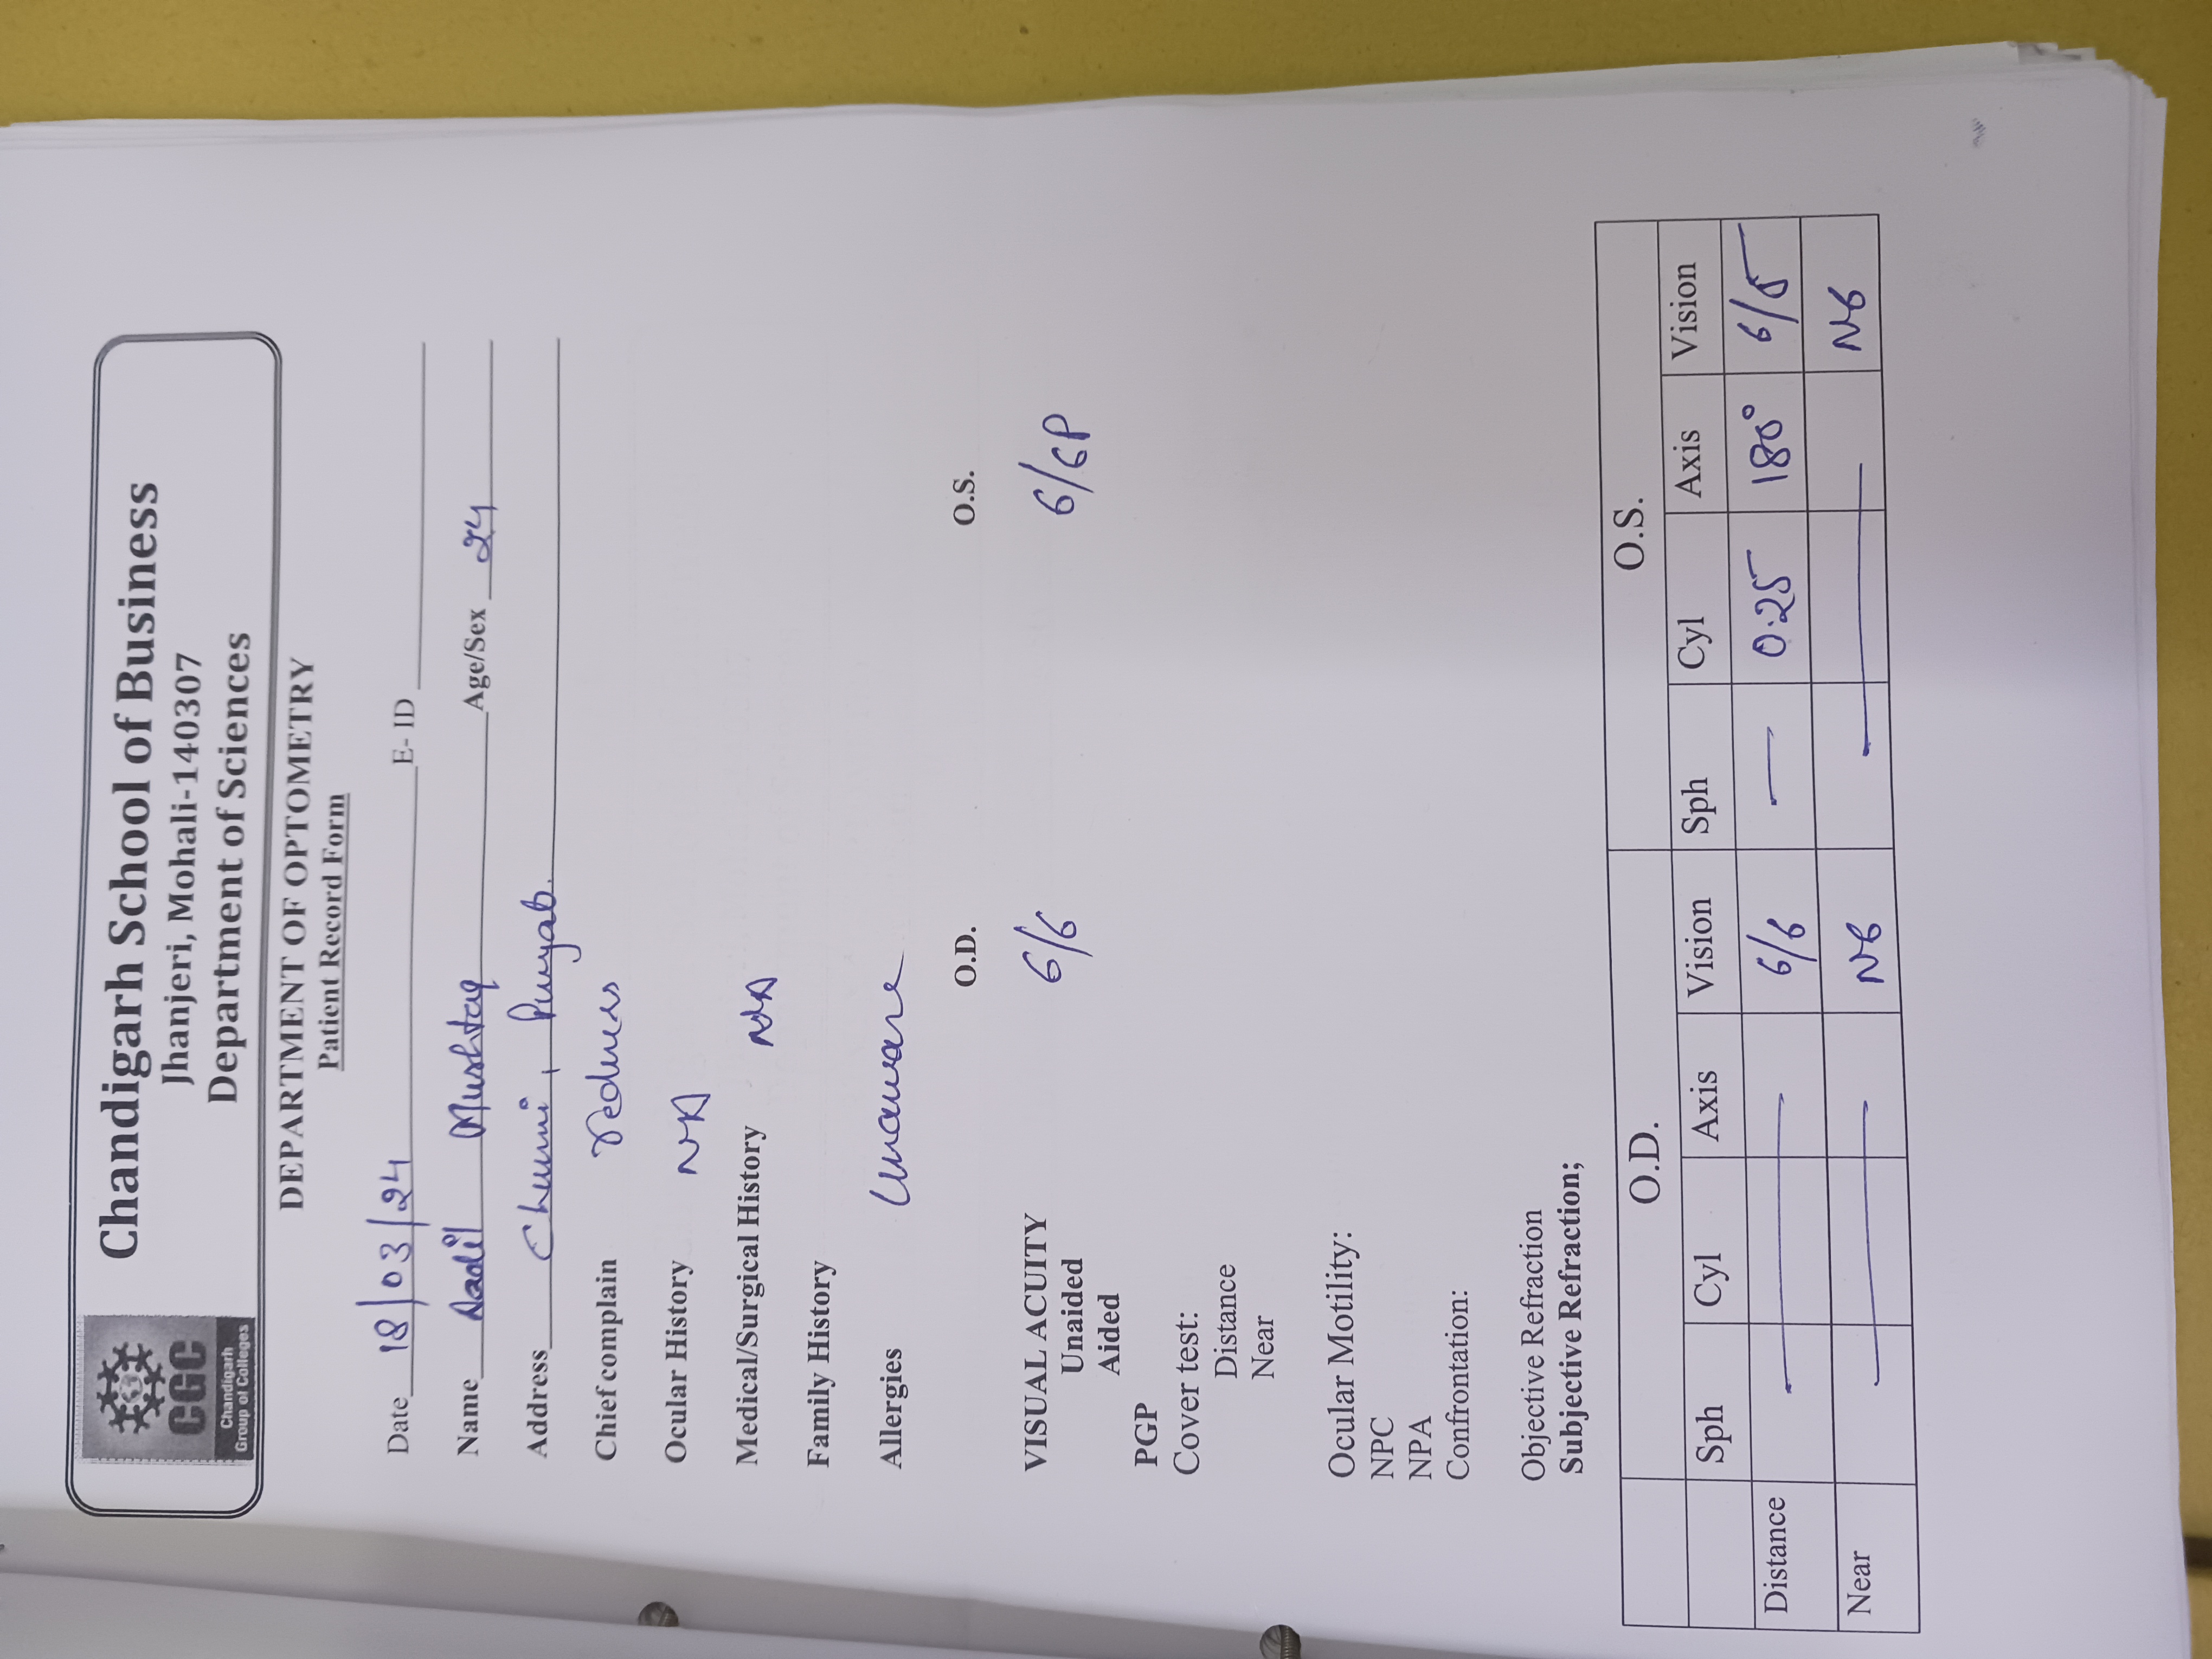 CGC
Chandigarh
Group of Colleges
Chandigarh School of Business
Jhanjeri, Mohali-140307
Department of Sciences
DEPARTMENT OF OPTOMETRY
Patient Record Form
Date 18/03/24 E- ID
Name Aadil Mushtaq Age/Sex 24
Address Chunni, Punjab.
Chief complain redness
Ocular History NA
Medical/Surgical History NA
Family History
Allergies Unaware
O.D. O.S.
VISUAL ACUITY 6/6 6/6P
Unaided
Aided
PGP
Cover test:
Distance
Near
Ocular Motility:
NPC
NPA
Confrontation:
Objective Refraction
Subjective Refraction;
O.D. O.S.
Sph Cyl Axis Vision Sph Cyl Axis Vision
Distance — 6/6 — 0.25 180° 6/5
Near — N6 — N6